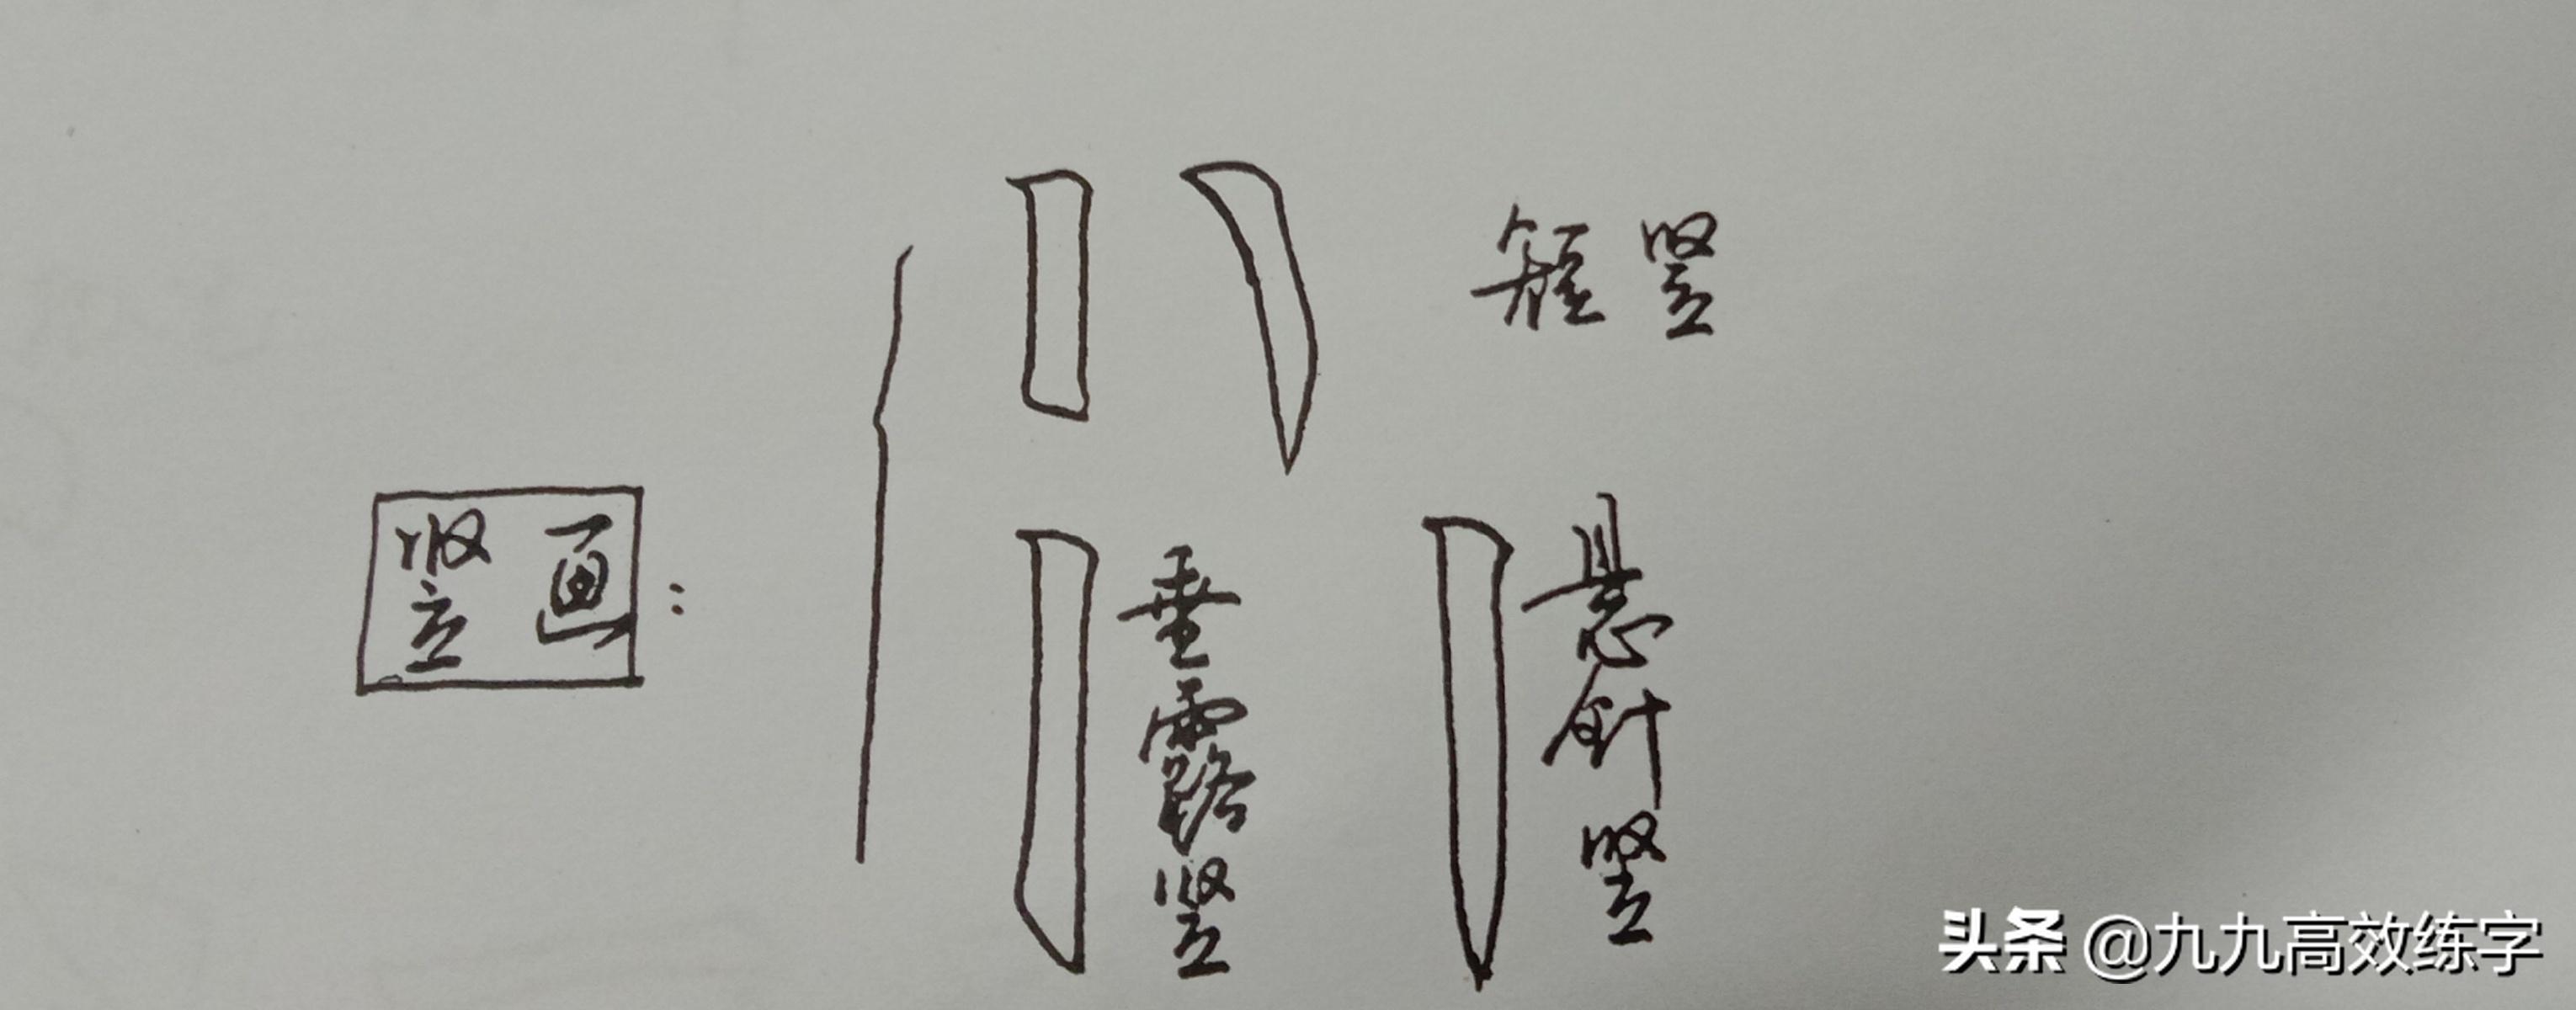 短竖
竖画:
垂露竖
悬针竖
头条 @九九高效练字